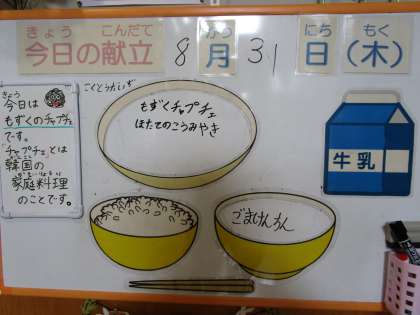 きょう こんだて がつ にち もく
今日の献立 8月31日(木)
きょう
今日は
もずくのチャプチェ
です。
「チャプチェ」とは
韓国の
家庭料理
のことです。
こくとうだいず
もずくチャプチェ
ほたてのこうみやき
ごまけんちん
牛乳